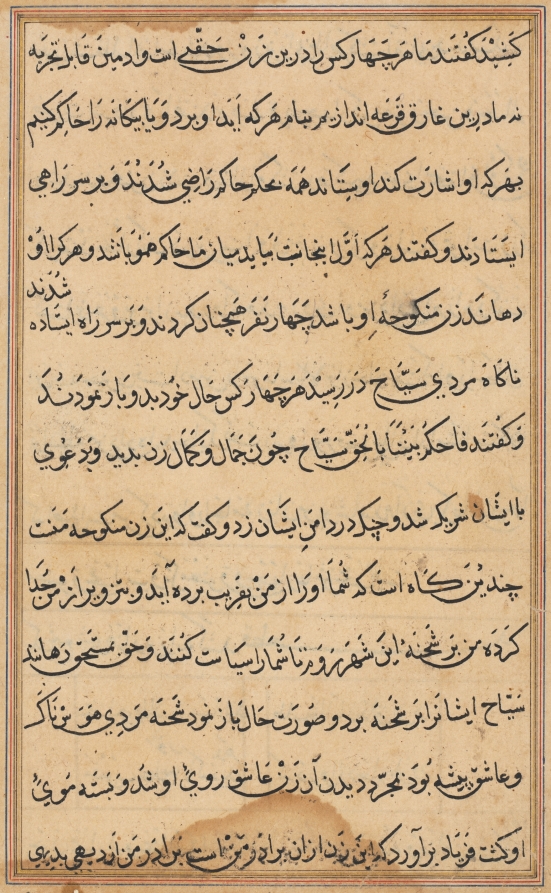 کشید گفتند ما هر چهار کس را درین زن حقی است و ادمین قابل تجزیه
نه ما درین غارق قرعه اندازیم بنام هرکه آید او برد و یا بیکانه را حاکم کنیم
بهرکه او اشارت کند او ستاند همه بحکم حاکم راضی شدند و بر سر راهی
ایستادند و گفتند هرکه اول ازینجانب بیاید میان ما حاکم همو باشد و هرکرا او
دهاند زن منکوحهٔ او باشد چهار نفر همچنان کردند و بر سر راه ایستاده شدند
ناکاه مردی سیاح در رسید هر چهار کس حال خود بدو باز نمودند
و گفتند فاحکم بیننا بالحق سیاح چون جمال و کمال زن بدید و بدعوی
با ایشان شریک شد و چنک در دامن ایشان زد و گفت که این زن منکوحه منست
چندین کاه است که شما او را از من بفریب برده آید و بتزویر از من جدا
کرده من بر شحنهٔ این شهر روم تا شما را سیاست کنند و حق بمستحق رهانند
سیاح ایشانرا بر شحنه برد و صورت حال باز نمود شحنه مردی هوس ناک
و عاشق پیشه بود بمجرد دیدن آن زن عاشق روی او شد و بسته موی
او کشت فریاد برآورد که این زن ازان برادر من است برادر من از دیهی بدیهی